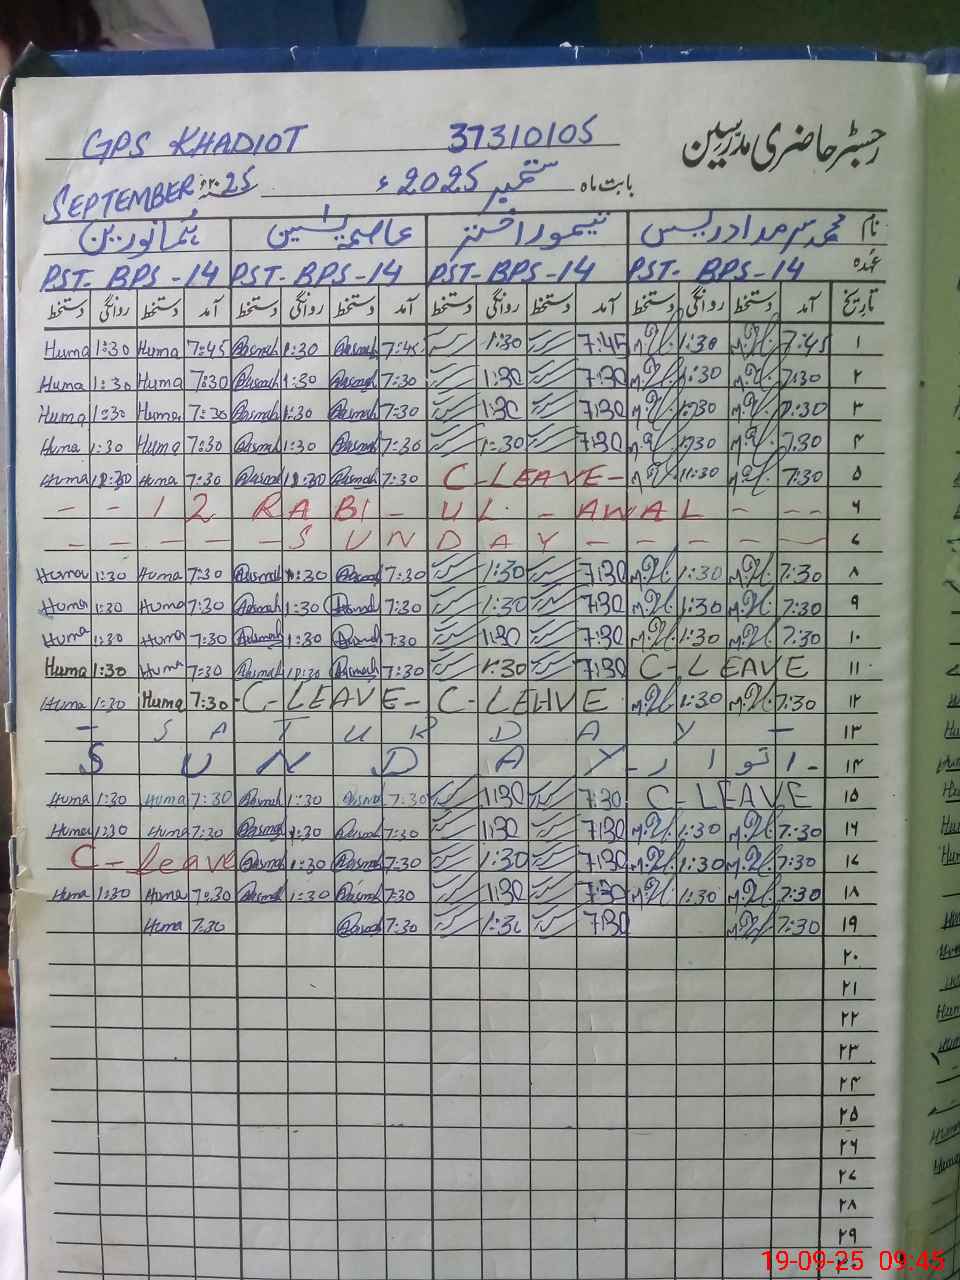 GPS KHADIOT 37310105 رجسٹر حاضری مدرسین
SEPTEMBER ۲۰25ء بابت ماہ ستمبر 2025ء
نام محمد سرمد ادریس تیمور اختر عاصمہ یٰسین ہما نورین
عہدہ PST-BPS-14 PST-BPS-14 PST-BPS-14 PST-BPS-14
تاریخ آمد دستخط روانگی دستخط آمد دستخط روانگی دستخط آمد دستخط روانگی دستخط آمد دستخط روانگی دستخط
Huma 1:30 Huma 7:45 Aasmah 1:30 Aasmah 7:45 1:30 7:45 1:30 7:45 ۱
Huma 1:30 Huma 7:30 Aasmah 1:30 Aasmah 7:30 1:30 7:30 1:30 7:30 ۲
Huma 1:30 Huma 7:30 Aasmah 1:30 Aasmah 7:30 1:30 7:30 1:30 7:30 ۳
Huma 1:30 Huma 7:30 Aasmah 1:30 Aasmah 7:30 1:30 7:30 1:30 7:30 ۴
Huma 12:30 Huma 7:30 Aasmah 12:30 Aasmah 7:30 C-LEAVE- 11:30 7:30 ۵
- - 12 RABI - UL - AWAL - - - ۶
- - - - - SUNDAY - - - - - ۷
Huma 1:30 Huma 7:30 Aasmah 1:30 Aasmah 7:30 1:30 7:30 1:30 7:30 ۸
Huma 1:30 Huma 7:30 Aasmah 1:30 Aasmah 7:30 1:30 7:30 1:30 7:30 ۹
Huma 1:30 Huma 7:30 Aasmah 1:30 Aasmah 7:30 1:30 7:30 1:30 7:30 ۱۰
Huma 1:30 Huma 7:30 Aasmah 1:30 Aasmah 7:30 1:30 7:30 C-LEAVE ۱۱
Huma 1:30 Huma 7:30 -C-LEAVE- C-LEAVE 1:30 7:30 ۱۲
- SATURDAY - ۱۳
SUNDAY - اتوار - ۱۴
Huma 1:30 Huma 7:30 Aasmah 1:30 Aasmah 7:30 1:30 7:30 C-LEAVE ۱۵
Huma 1:30 Huma 7:30 Aasmah 1:30 Aasmah 7:30 1:30 7:30 1:30 7:30 ۱۶
C-leave Aasmah 1:30 Aasmah 7:30 1:30 7:30 1:30 7:30 ۱۷
Huma 1:30 Huma 7:30 Aasmah 1:30 Aasmah 7:30 1:30 7:30 1:30 7:30 ۱۸
Huma 7:30 Aasmah 7:30 1:30 7:30 7:30 ۱۹
۲۰
۲۱
۲۲
۲۳
۲۴
۲۵
۲۶
۲۷
۲۸
۲۹
19-09-25 09:45